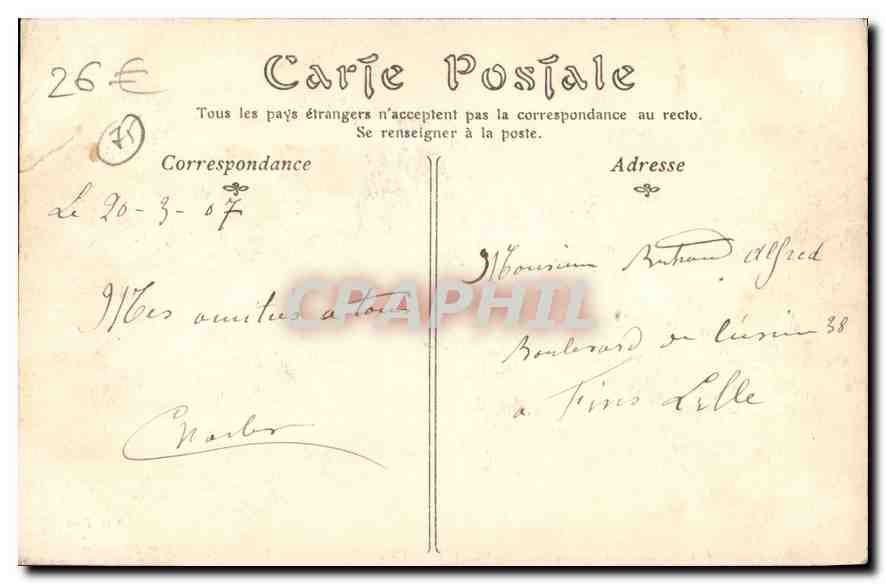 26 €
75
Carte Postale
Tous les pays étrangers n'acceptent pas la correspondance au recto.
Se renseigner à la poste.
Correspondance
Le 20-3-07
Mes amities a tous
Charles
Adresse
Monsieur Bertrand Alfred
Boulevard de l'usine 38
a Fives Lille
CPAPHIL